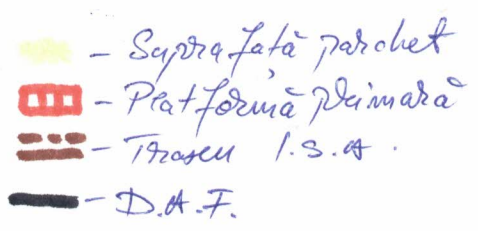 - Suprafață parchet
- Platformă primară
- Traseu I.S.A.
- D.A.F.